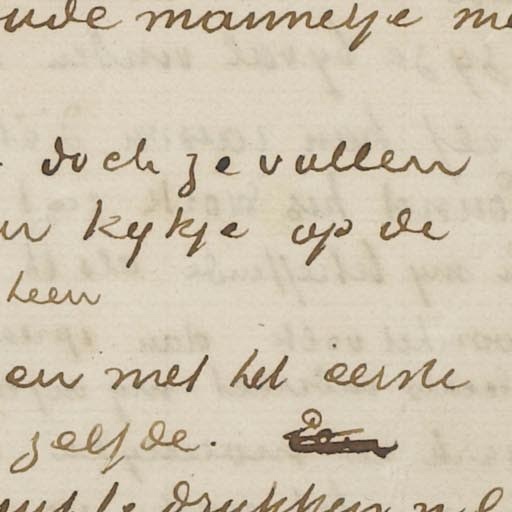 oude mannetje me
doch ze vallen
kykje op de
heen
en met het eerste
zelfde. Een
drukken